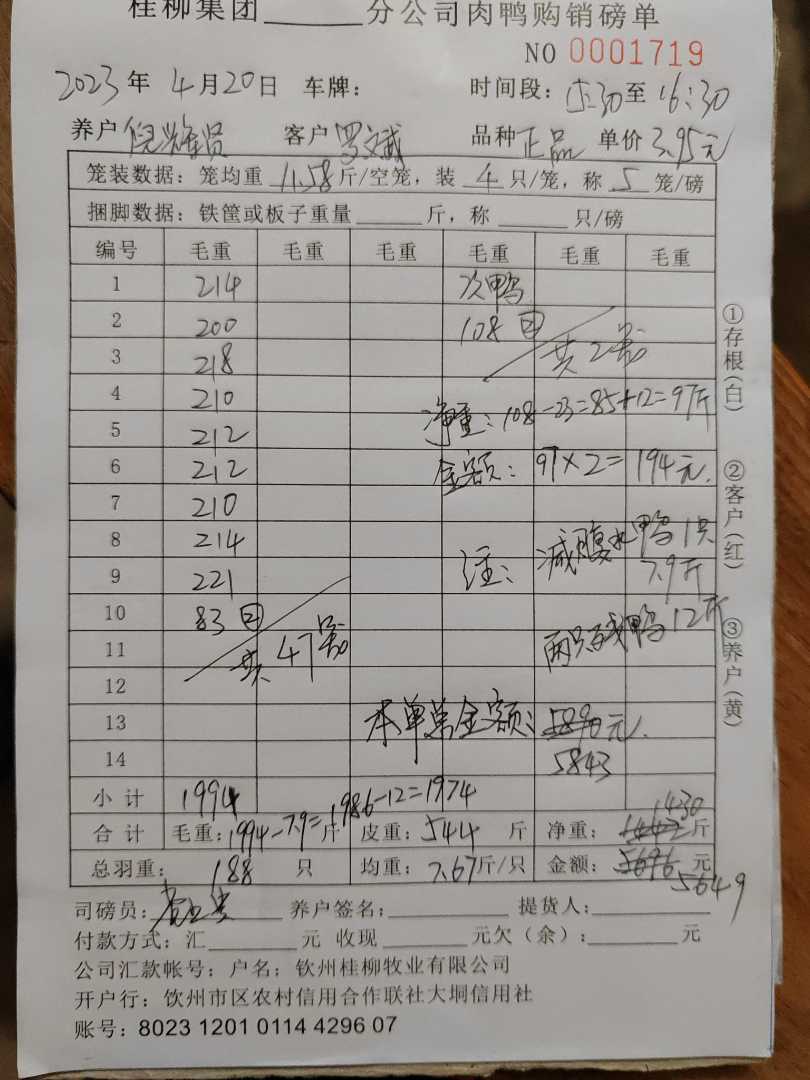 桂柳集团______分公司肉鸭购销磅单
NO 0001719
2023年 4月20日 车牌： 时间段：15:30至16:30
养户 倪辉贤 客户 罗文斌 品种 正品 单价 3.95元
笼装数据：笼均重 11.58斤/空笼，装 4 只/笼，称 5 笼/磅
捆脚数据：铁筐或板子重量______斤，称______只/磅
编号 毛重 毛重 毛重 毛重 毛重 毛重
1 214 次鸭
2 200 108 ②
3 218 共2笼
4 210 净重：108-23=85+12=97斤
5 212
6 212 金额：97×2=194元.
7 210
8 214 注：减腹水鸭1只
9 221 7.9斤
10 83 ②
11 共47笼 两只残鸭12斤
12
13 本单总金额：5890元.
14 5843
小计 1994
合计 毛重：1994-7.9=1986-12=1974斤 皮重：544 斤 净重：1442 1430斤
总羽重： 188 只 均重：7.67斤/只 金额：5696 5649元
司磅员： 养户签名；______ 提货人；______
付款方式：汇______元 收现______元欠（余）：______元
公司汇款帐号：户名；钦州桂柳牧业有限公司
开户行：饮州市区农村信用合作联社大垌信用社
账号：8023 1201 0114 4296 07
①存根(白)
②客户(红)
③养户(黄)